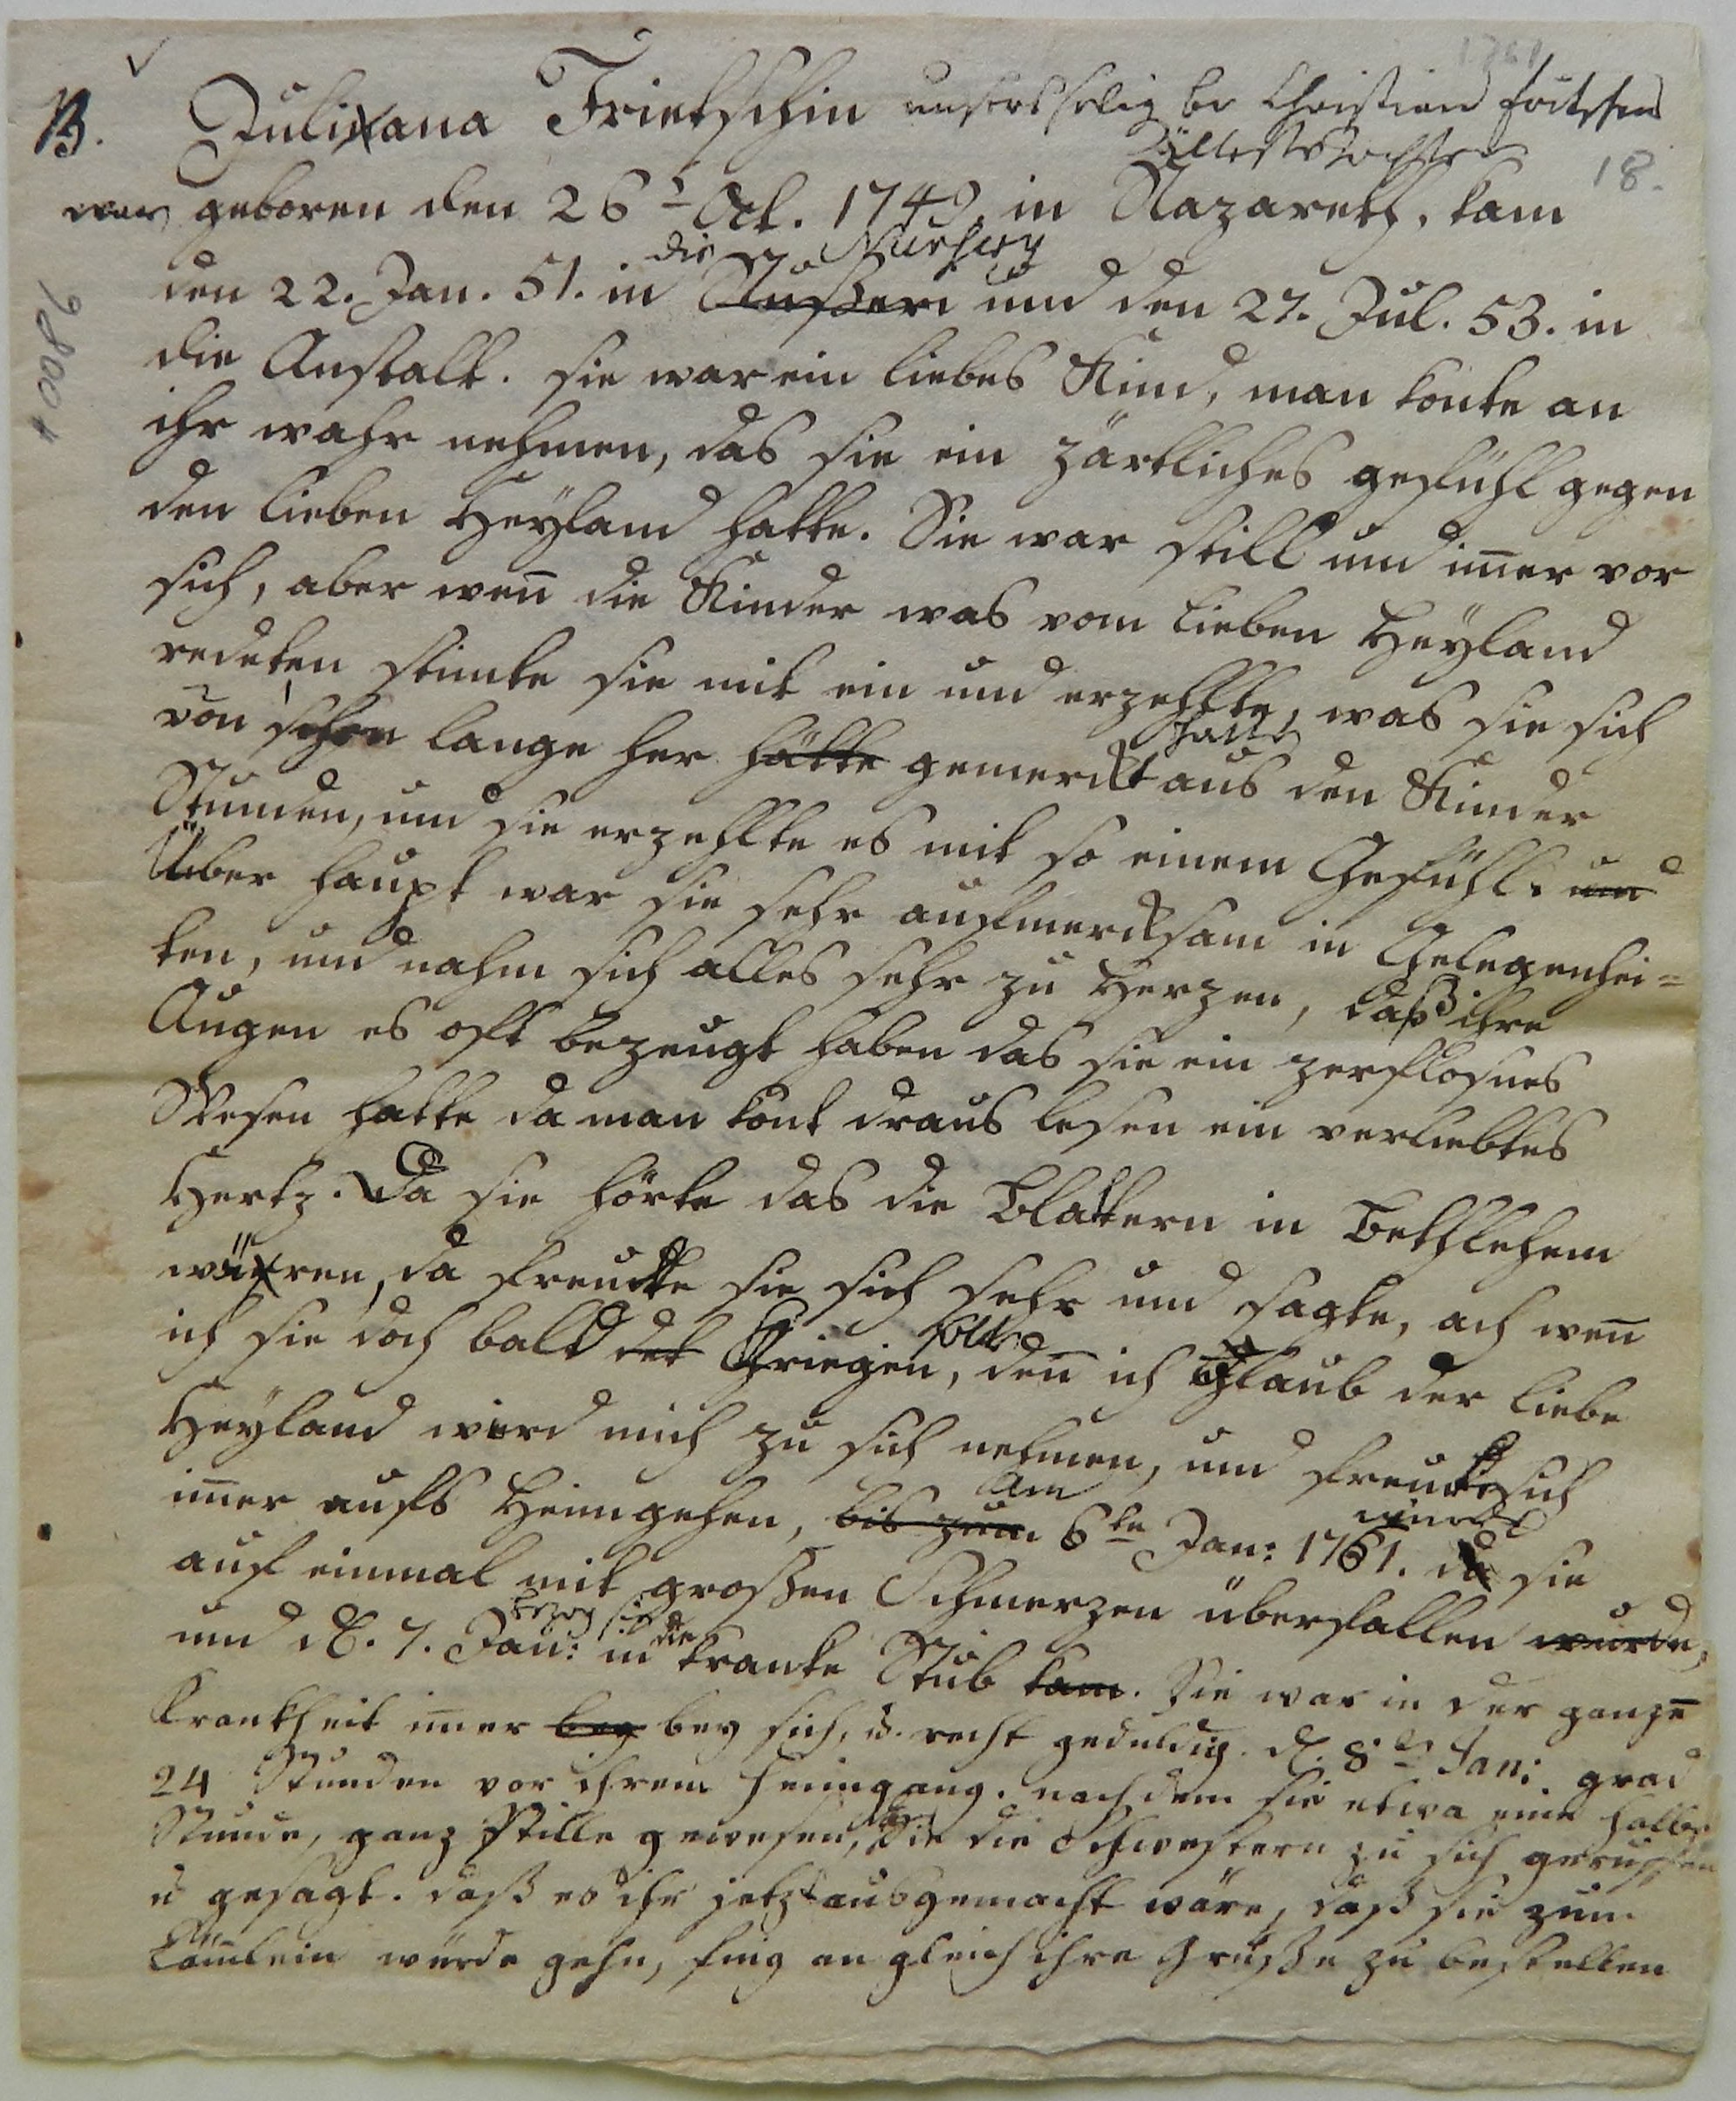 1761
B. Juliana Frietschin unsers selig br Christian Fritschens
Älteste Tochter
18.
war geboren den 26t Oct. 1749. in Nazareth, kam
die Nursery
den 22. Jan. 51. in Nußeri und den 27. Jul. 53. in
die Anstalt. sie war ein liebes Kind, man konte an
ihr wahr nehmen, das sie ein zärtliches gefühl gegen
den lieben Heÿland hatte. Sie war still und im̅er vor
sich, aber wen̅ die Kinder was vom lieben Heÿland
redeten stimte sie mit ein und erzehlte, was sie sich
hatte
von schon lange her hätte gemerckt aus den Kinder
Stunden, und sie erzehlte es mit so einem Gefühl. und
Über haupt war sie sehr aufmercksam in Gelegenhei=
ten, und nahm sich alles sehr zu Herzen, daß ihre
Augen es oft bezeugt haben das sie ein zerfloßnes
Wesen hatte da man kont draus lesen ein verliebtes
Hertz. Da sie hörte das die Blattern in Bethlehem
wären, da freute sie sich sehr und sagte, ach wen̅
solte
ich sie doch bald det Kriegen, den̅ ich Glaub der liebe
Heÿland wird mich zu sich nehmen, und freute sich
Am
im̅er aufs Heimgehen, bis zum 6ten Jan: 1761. da sie
wurde
auf einmal mit großen Schmerzen überfallen wurde,
bezog sie die
und d. 7. Jan: in kranke Stub kam. Sie war in der ganzen̅
Krankheit im̅er bey bey sich, u. recht geduldig. d. 8te Jan: grad
24 Stunden vor ihrem heimgang. nach dem sie etwa eine halbe
Stunde, ganz stille gewesen, Sie die Schwestern zu sich geruffen
u gesagt. daß es ihr jetzt ausgemacht wäre, daß sie zum
Läm̅lein würde gehn, fing an gleich ihre Grüße zu bestellen